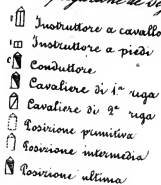 Instruttore a cavallo
Instruttore a piedi
Conduttore
Cavaliere di 1ª riga
Cavaliere di 2ª riga
Posizione primitiva
Posizione intermedia
Posizione ultima